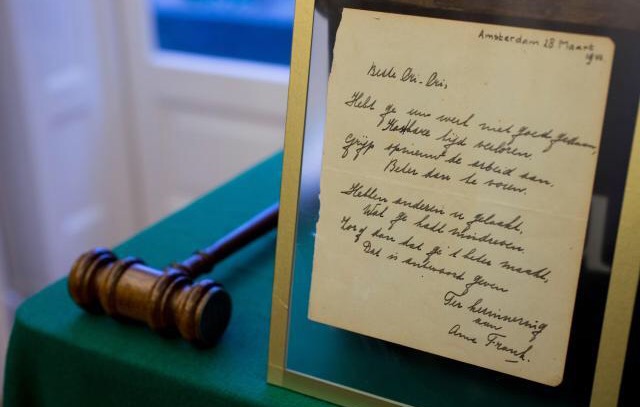 Amsterdam 28 Maart
Beste Cri-Cri,
Hebt ge uw werk niet goed gedaan,
Kostbare tijd verloren
Grijp opnieuw de arbeid aan,
Beter dan te voren.
Hebben anderen u gelaakt,
Wat ge hebt misdreven.
Zorg dan dat ge 't beter maakt,
Dat is antwoord geven
Ter herinnering
aan
Anne Frank.